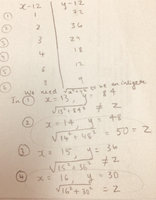 x-12 y-12
① 1 72
② 2 36
③ 3 24
④ 4 18
⑤ 6 12
⑥ 8 9
We need √x²+y² to be an integer
In ① x = 13, y = 84
√13²+84² ≠ Z
② x = 14, y = 48
√14²+48² = 50 = Z
③ x = 15, y = 36
√15²+36² ≠ Z
④ x = 16, y = 30
√16²+30² = Z